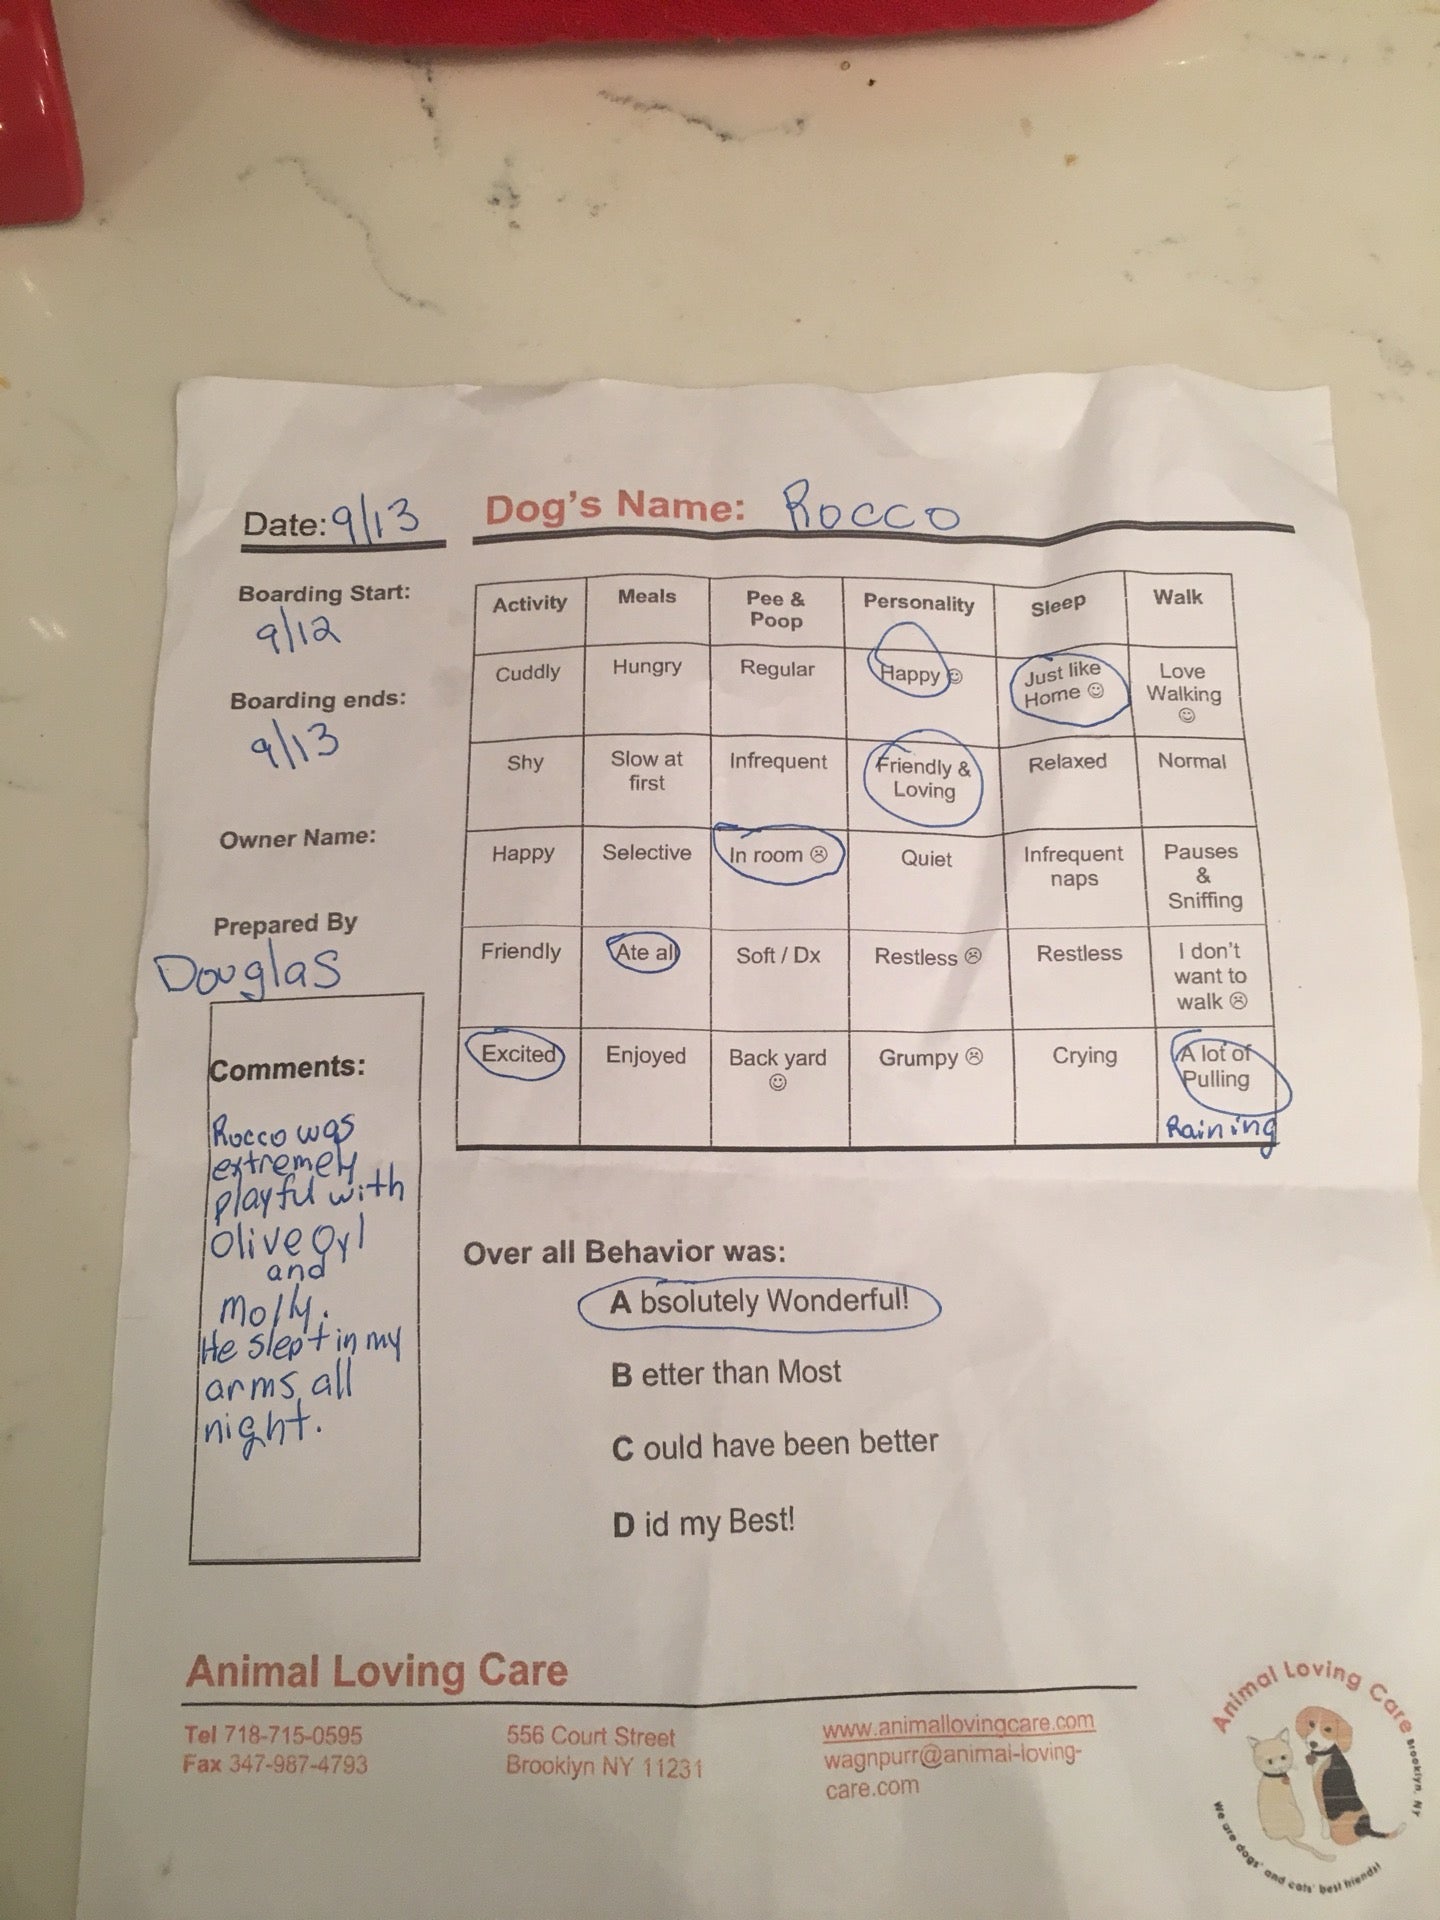 Date: 9/13
Dog's Name: Rocco
Boarding Start:
9/12
Boarding ends:
9/13
Owner Name:
Prepared By
Douglas
Comments:
Rocco was
extremely
playful with
Olive Oyl
and
Molly.
He slept in my
arms all
night.
Activity Meals Pee & Poop Personality Sleep Walk
Cuddly Hungry Regular Happy ☺ Just like Home ☺ Love Walking ☺
Shy Slow at first Infrequent Friendly & Loving Relaxed Normal
Happy Selective In room ☹ Quiet Infrequent naps Pauses & Sniffing
Friendly Ate all Soft / Dx Restless ☹ Restless I don't want to walk ☹
Excited Enjoyed Back yard ☺ Grumpy ☹ Crying A lot of Pulling
Raining
Over all Behavior was:
A bsolutely Wonderful!
B etter than Most
C ould have been better
D id my Best!
Animal Loving Care
Tel 718-715-0595
Fax 347-987-4793
556 Court Street
Brooklyn NY 11231
www.animallovingcare.com
wagnpurr@animal-loving-
care.com
Animal Loving Care
Brooklyn, NY
We are dogs' and cats' best friends!